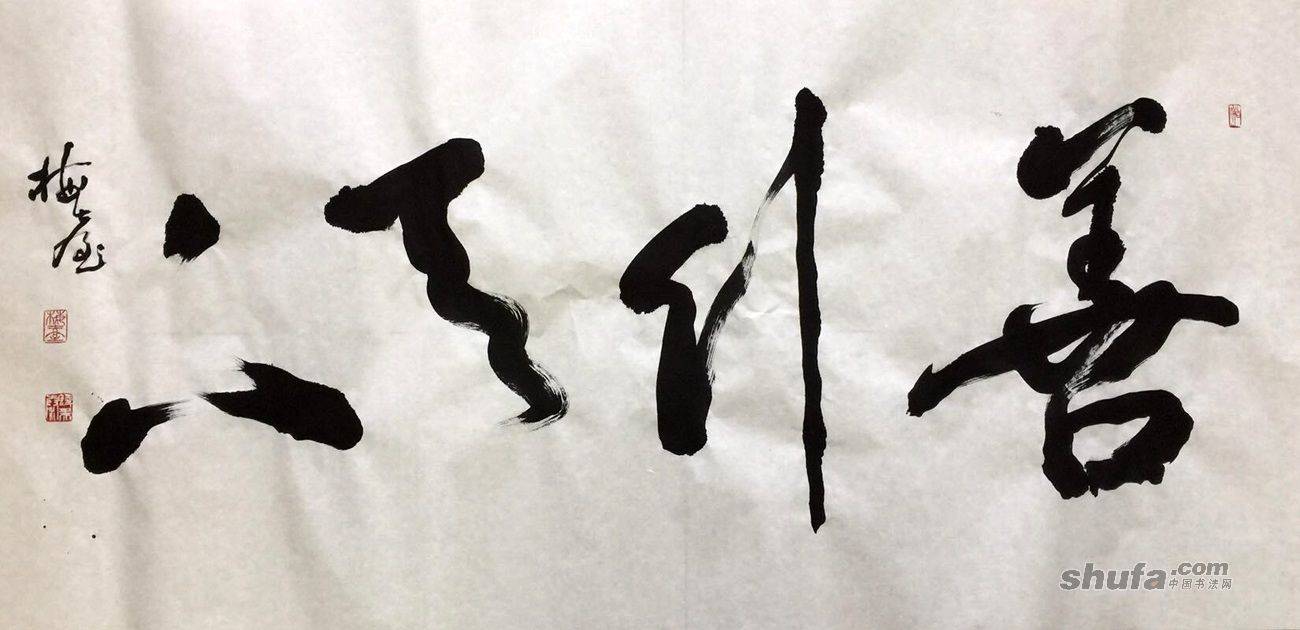 善行天下
梅
shufa.com
中国书法网